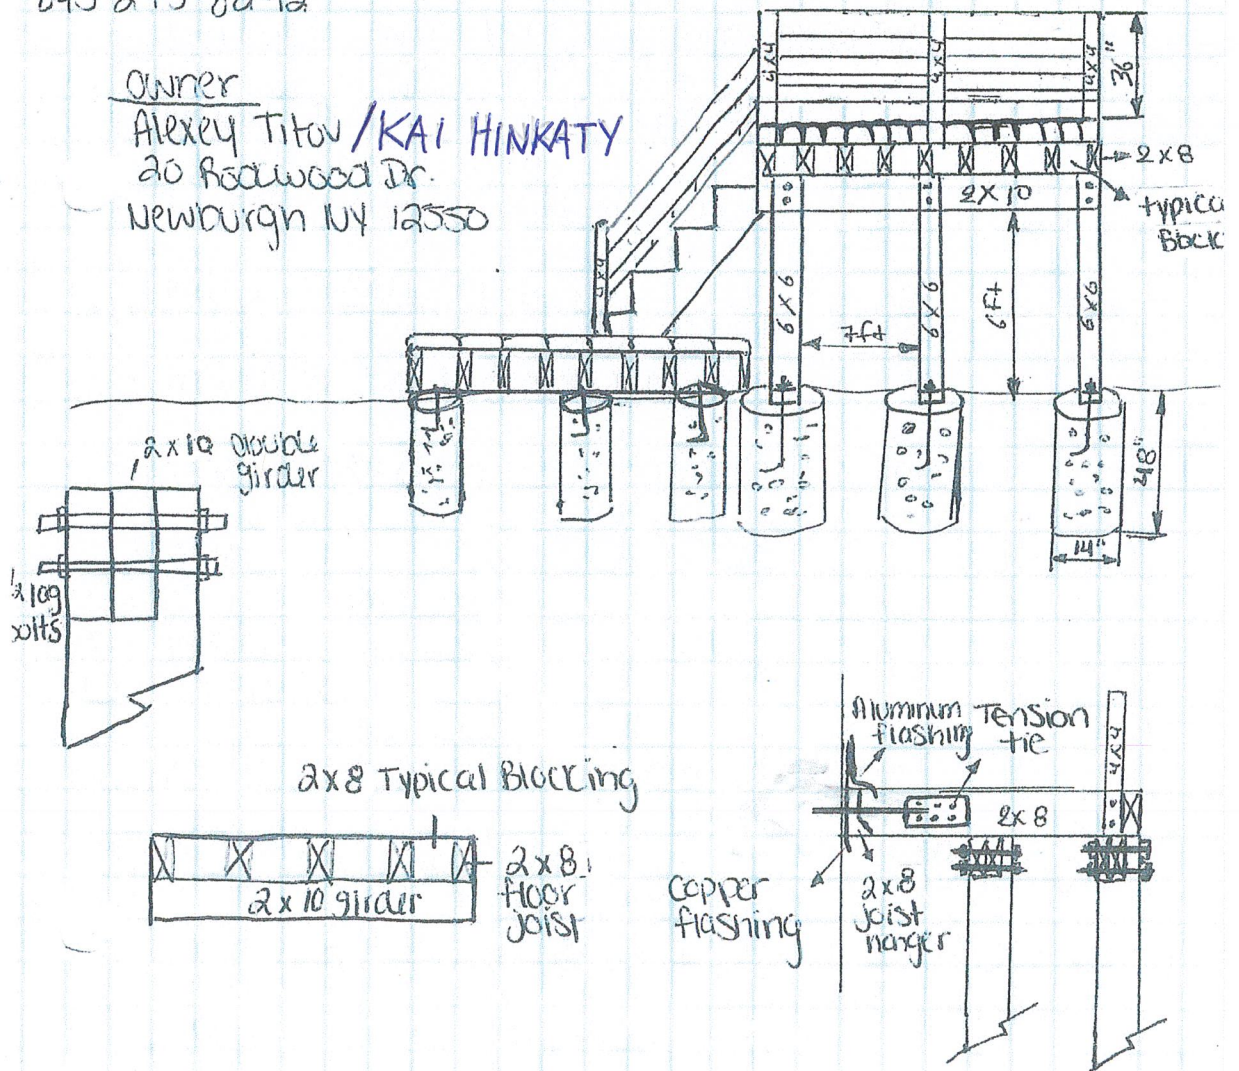 owner
Alexey Titov / KAI HINKATY
20 Rodwood Dr.
Newburgh NY 12550
4x4
4x4
4x4
36"
2x8
2x10
typica
Block
4x4
6x6
6x6
6x6
7ft
6ft
48"
14"
2x10 double
girder
1/2 lag
bolts
2x8 Typical Blocking
2x8
floor
joist
2x10 girder
Aluminum
flashing
Tension
tie
4x4
2x8
copper
flashing
2x8
joist
hanger